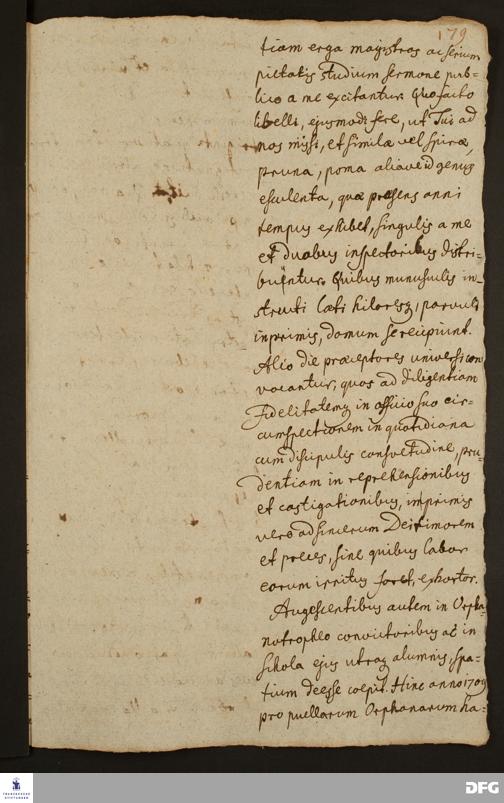 179
tiam erga magistros ac serium
pietatis studium sermone pub=
lico a me excitantur. Quo facto
libelli, ejusmodi fere, ut Tui ad
nos missi, et similæ vel spiræ,
pruna, poma aliave id genus
esculenta, quæ præsens anni
tempus exhibet, singulis a me
et duobus inspectoribus distri-
buuntur. Quibus munusculis in-
structi læti hilaresq, parvuli
inprimis, domum se recipiunt.
Alio die præceptores universi con
vocantur, quos ad diligentiam
Fidelitatemq in officio suo cir=
cumspectionem in quotidiana
cum discipulis consvetudine, pru-
dentiam in reprehensionibus
et castigationibus, inprimis
vero ad sincerum Dei timorem
et preces, sine quibus labor
eorum irritus foret, exhortor.
Augescentibus autem in Orpha-
notropheo convictoribus ac in
schola ejus utraq alumnis, spa-
tium deesse coepit. Hinc anno 1709
pro puellarum Orphanarum ha-
FRANCKESCHE STIFTUNGEN
DFG